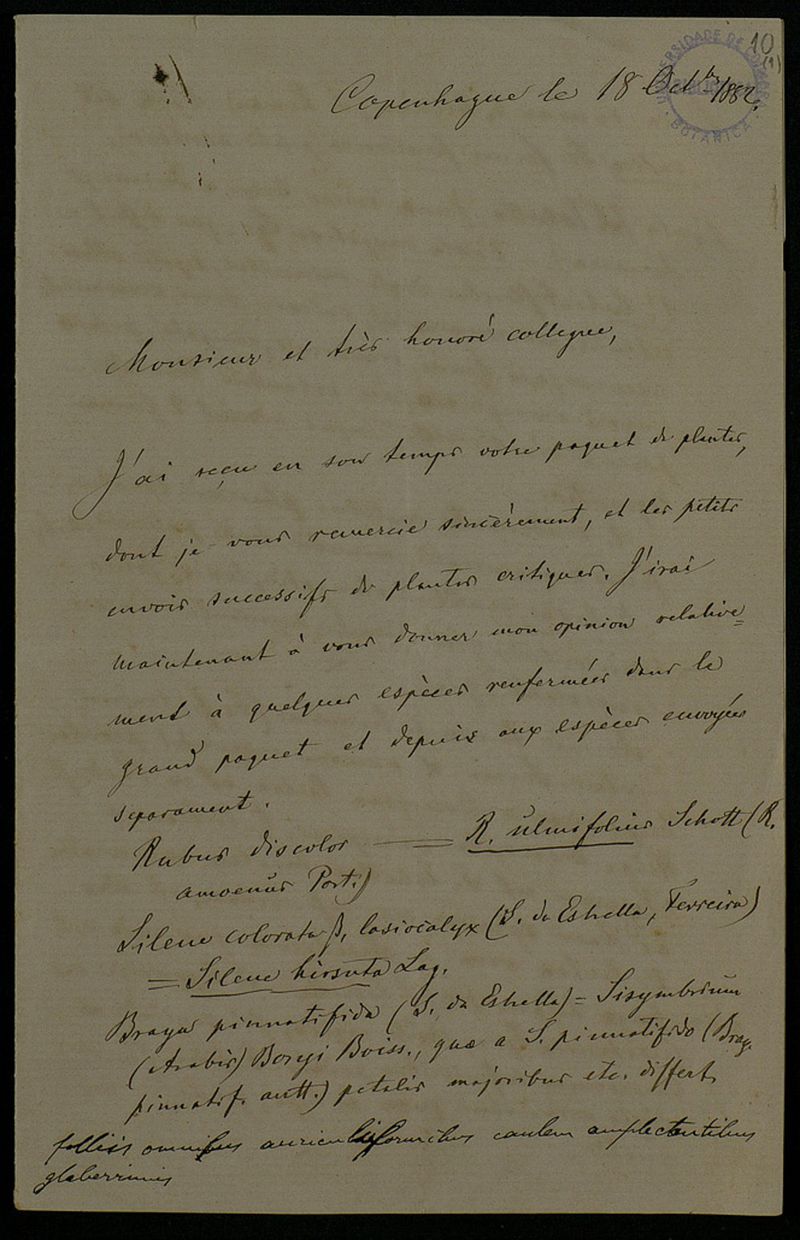 10
(1)
Copenhague le 18 Octbr 1882.
UNIVERSIDADE DE COIMBRA
BOTANICA
Monsieur et très honoré collegue,
J'ai reçu en son temps votre paquet de plantes,
dont je vous remercie sincèrement, et les petits
envois successifs de plantes critiques. J'irai
maintenant à vous donner mon opinion relative=
ment à quelques espèces renfermées dans le
grand paquet et depuis aux espèces envoyées
separament.
Rubus discolor — = R. ulmifolius Schott (R.
amoenus Port.)
Silene colorata β. lasiocalyx (S. da Estrella, Ferreira)
= Silene hirsuta Lag.
Braya pinnatifida (S. da Estrella) = Sisymbrium
(Arabis) Boryi Boiss., quæ a S. pinnatifido (Bray.
pinnatif. autt.) petalis majoribus etc. differt.
foliis omnibus auriculiformibus caulem amplectentibus
glaberrimis